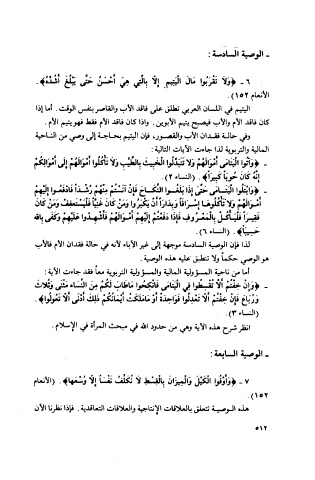 ـ الوصية السادسة :
٦ ـ ﴿وَلَا تَقْرَبُوا مَالَ الْيَتِيمِ إِلَّا بِالَّتِي هِيَ أَحْسَنُ حَتَّى يَبْلُغَ أَشُدَّهُ﴾ .
الأنعام ١٥٢) .
اليتيم في اللسان العربي تطلق على فاقد الأب والقاصر بنفس الوقت. أما إذا
كان فاقد الأم والأب فيصبح يتيم الأبوين. وإذا كان فاقد الأم فقط فهو يتيم الأم.
وفي حالة فقدان الأب والقصور، فإن اليتيم بحاجة إلى وصي من الناحية
المالية والتربوية لذا جاءت الآيات التالية :
ـ ﴿وَآتُوا الْيَتَامَى أَمْوَالَهُمْ وَلَا تَتَبَدَّلُوا الْخَبِيثَ بِالطَّيِّبِ وَلَا تَأْكُلُوا أَمْوَالَهُمْ إِلَى أَمْوَالِكُمْ
إِنَّهُ كَانَ حُوبًا كَبِيرًا﴾ . (النساء ٢) .
ـ ﴿وَابْتَلُوا الْيَتَامَى حَتَّى إِذَا بَلَغُوا النِّكَاحَ فَإِنْ آنَسْتُمْ مِنْهُمْ رُشْدًا فَادْفَعُوا إِلَيْهِمْ
أَمْوَالَهُمْ وَلَا تَأْكُلُوهَا إِسْرَافًا وَبِدَارًا أَنْ يَكْبَرُوا وَمَنْ كَانَ غَنِيًّا فَلْيَسْتَعْفِفْ وَمَنْ كَانَ
فَقِيرًا فَلْيَأْكُلْ بِالْمَعْرُوفِ فَإِذَا دَفَعْتُمْ إِلَيْهِمْ أَمْوَالَهُمْ فَأَشْهِدُوا عَلَيْهِمْ وَكَفَى بِاللهِ
حَسِيبًا﴾ . (النساء ٦) .
لذا فإن الوصية السادسة موجهة إلى غير الأباء لأنه في حالة فقدان الأم فالأب
هو الوصي حكماً ولا تنطبق عليه هذه الوصية .
أما من ناحية المسؤولية المالية والمسؤولية التربوية معاً فقد جاءت الآية :
ـ ﴿وَإِنْ خِفْتُمْ أَلَّا تُقْسِطُوا فِي الْيَتَامَى فَانْكِحُوا مَا طَابَ لَكُمْ مِنَ النِّسَاءِ مَثْنَى وَثُلَاثَ
وَرُبَاعَ فَإِنْ خِفْتُمْ أَلَّا تَعْدِلُوا فَوَاحِدَةً أَوْ مَا مَلَكَتْ أَيْمَانُكُمْ ذَلِكَ أَدْنَى أَلَّا تَعُولُوا﴾
(النساء ٣) .
انظر شرح هذه الآية وهي من حدود الله في مبحث المرأة في الإسلام .
ـ الوصية السابعة :
٧ ـ ﴿وَأَوْفُوا الْكَيْلَ وَالْمِيزَانَ بِالْقِسْطِ لَا نُكَلِّفُ نَفْسًا إِلَّا وُسْعَهَا﴾ . (الأنعام
١٥٢) .
هذه الوصية تتعلق بالعلاقات الإنتاجية والعلاقات التعاقدية . فإذا نظرنا الآن
٥١٢